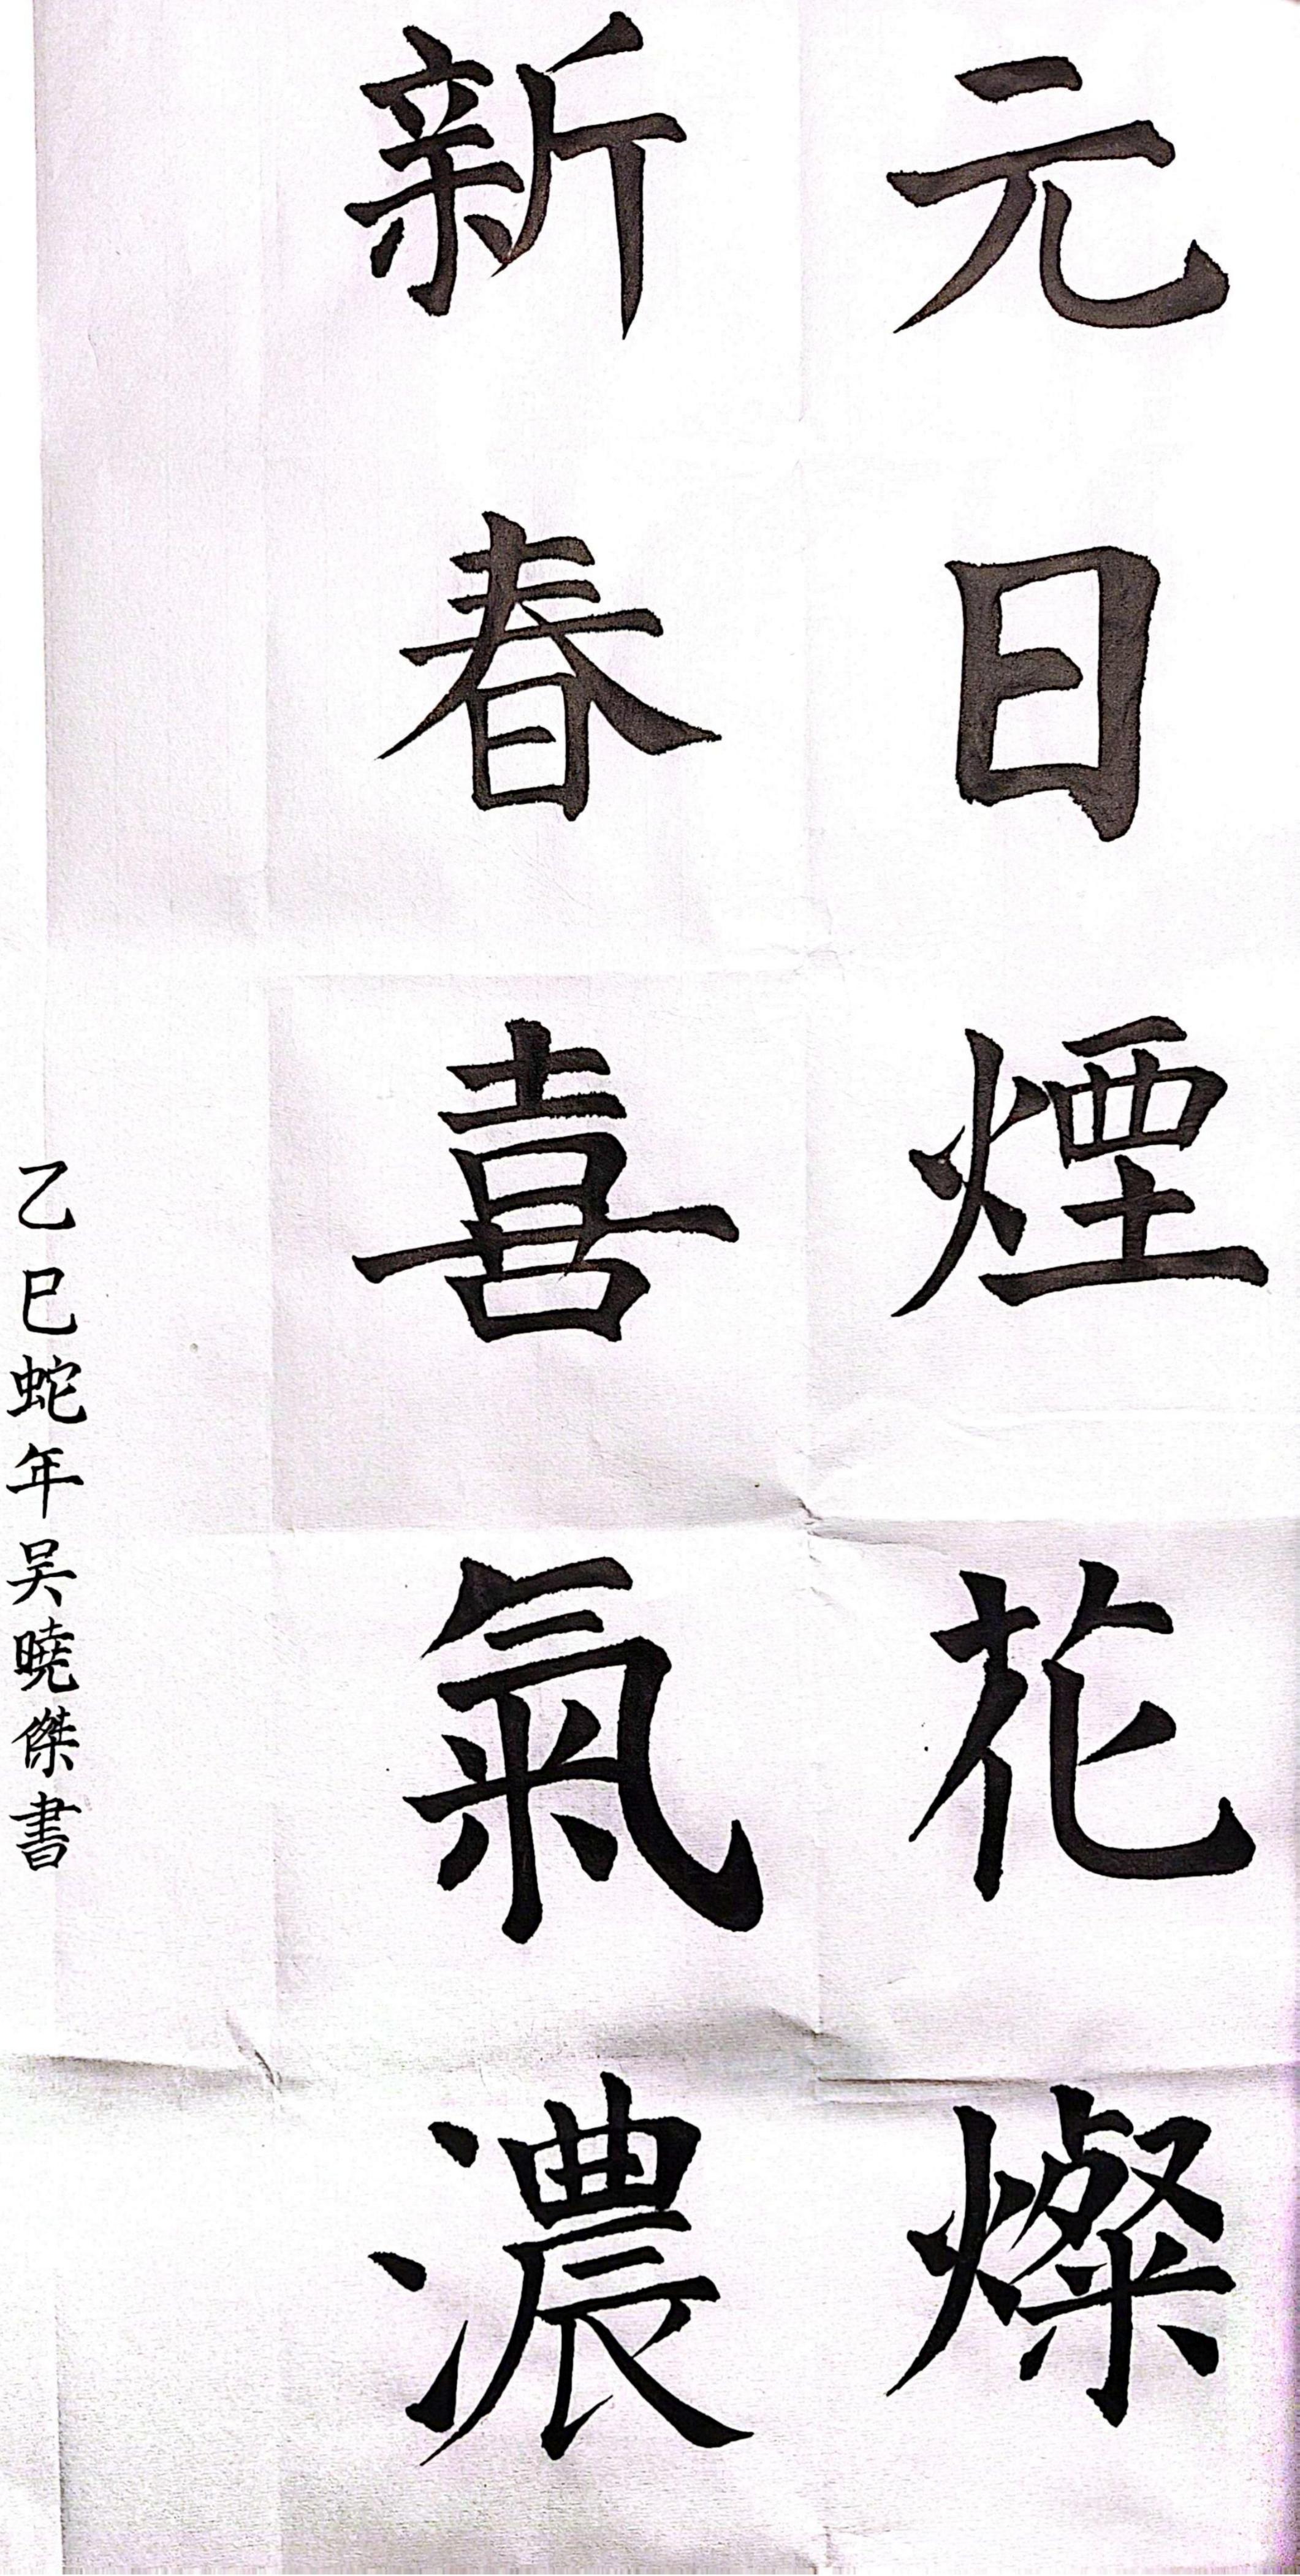 元日煙花燦
新春喜氣濃
乙巳蛇年吴曉傑書